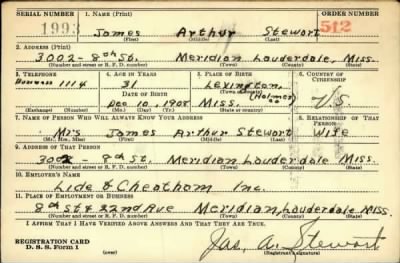 SERIAL NUMBER
1. NAME (Print)
ORDER NUMBER
1993
James Arthur Stewart
512
(First) (Middle) (Last)
2. ADDRESS (Print)
3002 - 8th St. Meridian Lauderdale, Miss.
(Number and street or R. F. D. number) (Town) (County) (State)
3. TELEPHONE
4. AGE IN YEARS
5. PLACE OF BIRTH
6. COUNTRY OF CITIZENSHIP
Business 1114
31
Lexington,
DATE OF BIRTH
(Town or county)
(Holmes Co)
Dec. 10, 1908
Miss.
U/S.
(Exchange) (Number)
(Mo.) (Day) (Yr.)
(State or country)
7. NAME OF PERSON WHO WILL ALWAYS KNOW YOUR ADDRESS
8. RELATIONSHIP OF THAT PERSON
Mrs James Arthur Stewort Wife
(Mr., Mrs., Miss) (First) (Middle) (Last)
9. ADDRESS OF THAT PERSON
3002 - 8th St. Meridian Lauderdale Miss.
(Number and street or R. F. D. number) (Town) (County) (State)
10. EMPLOYER'S NAME
Lide & Cheatham Inc.
11. PLACE OF EMPLOYMENT OR BUSINESS
8th St & 22nd Ave Meridian, Lauderdale Miss.
(Number and street or R. F. D. number) (Town) (County) (State)
I AFFIRM THAT I HAVE VERIFIED ABOVE ANSWERS AND THAT THEY ARE TRUE.
REGISTRATION CARD
D. S. S. Form 1
Jas. A. Stewart
(Registrant's signature)